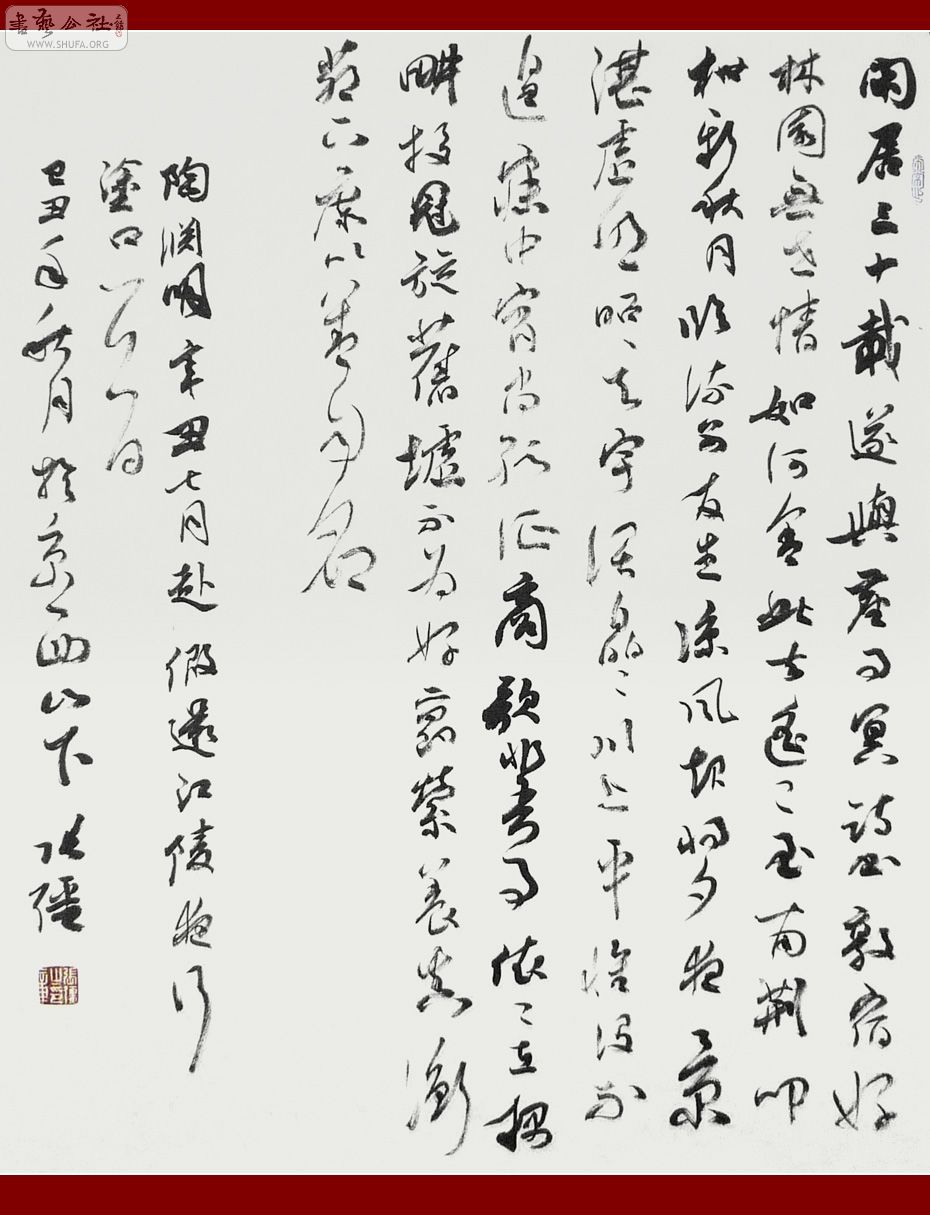 書藝公社
WWW.SHUFA.ORG
閑居三十載遂與塵事冥詩書敦宿好
林園無世情如何舍此去遙〻至南荊叩
枻新秋月臨流別友生涼風起將夕夜景
湛虛明昭〻天宇闊皛〻川上平懷役不
遑寐中宵尚孤征商歌非吾事依〻在耦
畊投冠旋舊墟不為好爵縈養真衡
茅下庶以善自名
陶淵明辛丑七月赴假還江陵夜行
塗口一首
己丑年秋月於京西山下 張疆